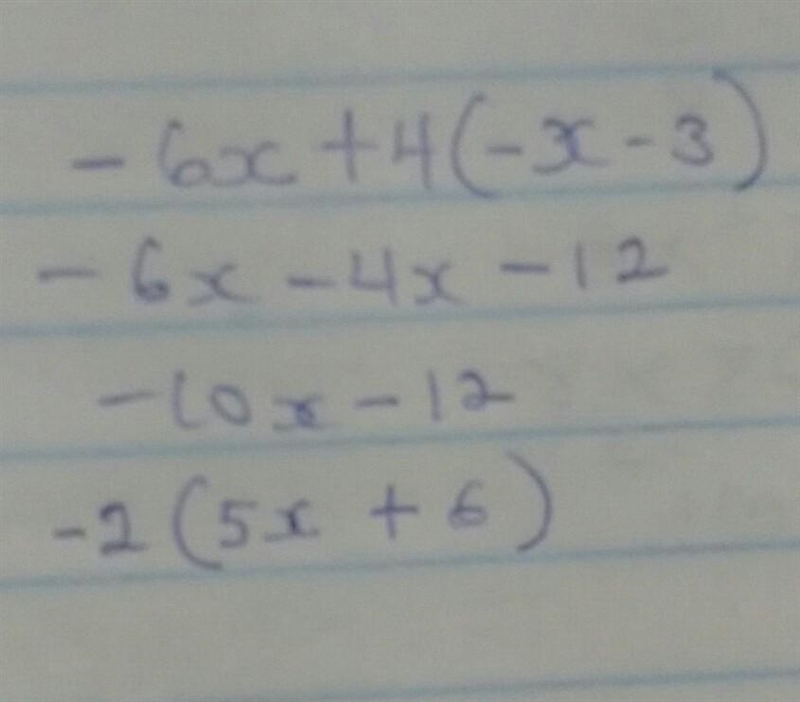 -6x+4(-x-3)
-6x-4x-12
-10x-12
-2(5x+6)